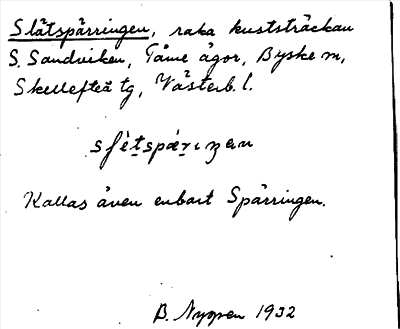 Slätspärringen, raka kuststräckan
S. Sandviken, Tåme ägor, Byske sn,
Skellefteå tg, Västerb. l.
Kallas även enbart Spärringen.
B. Nygren 1932